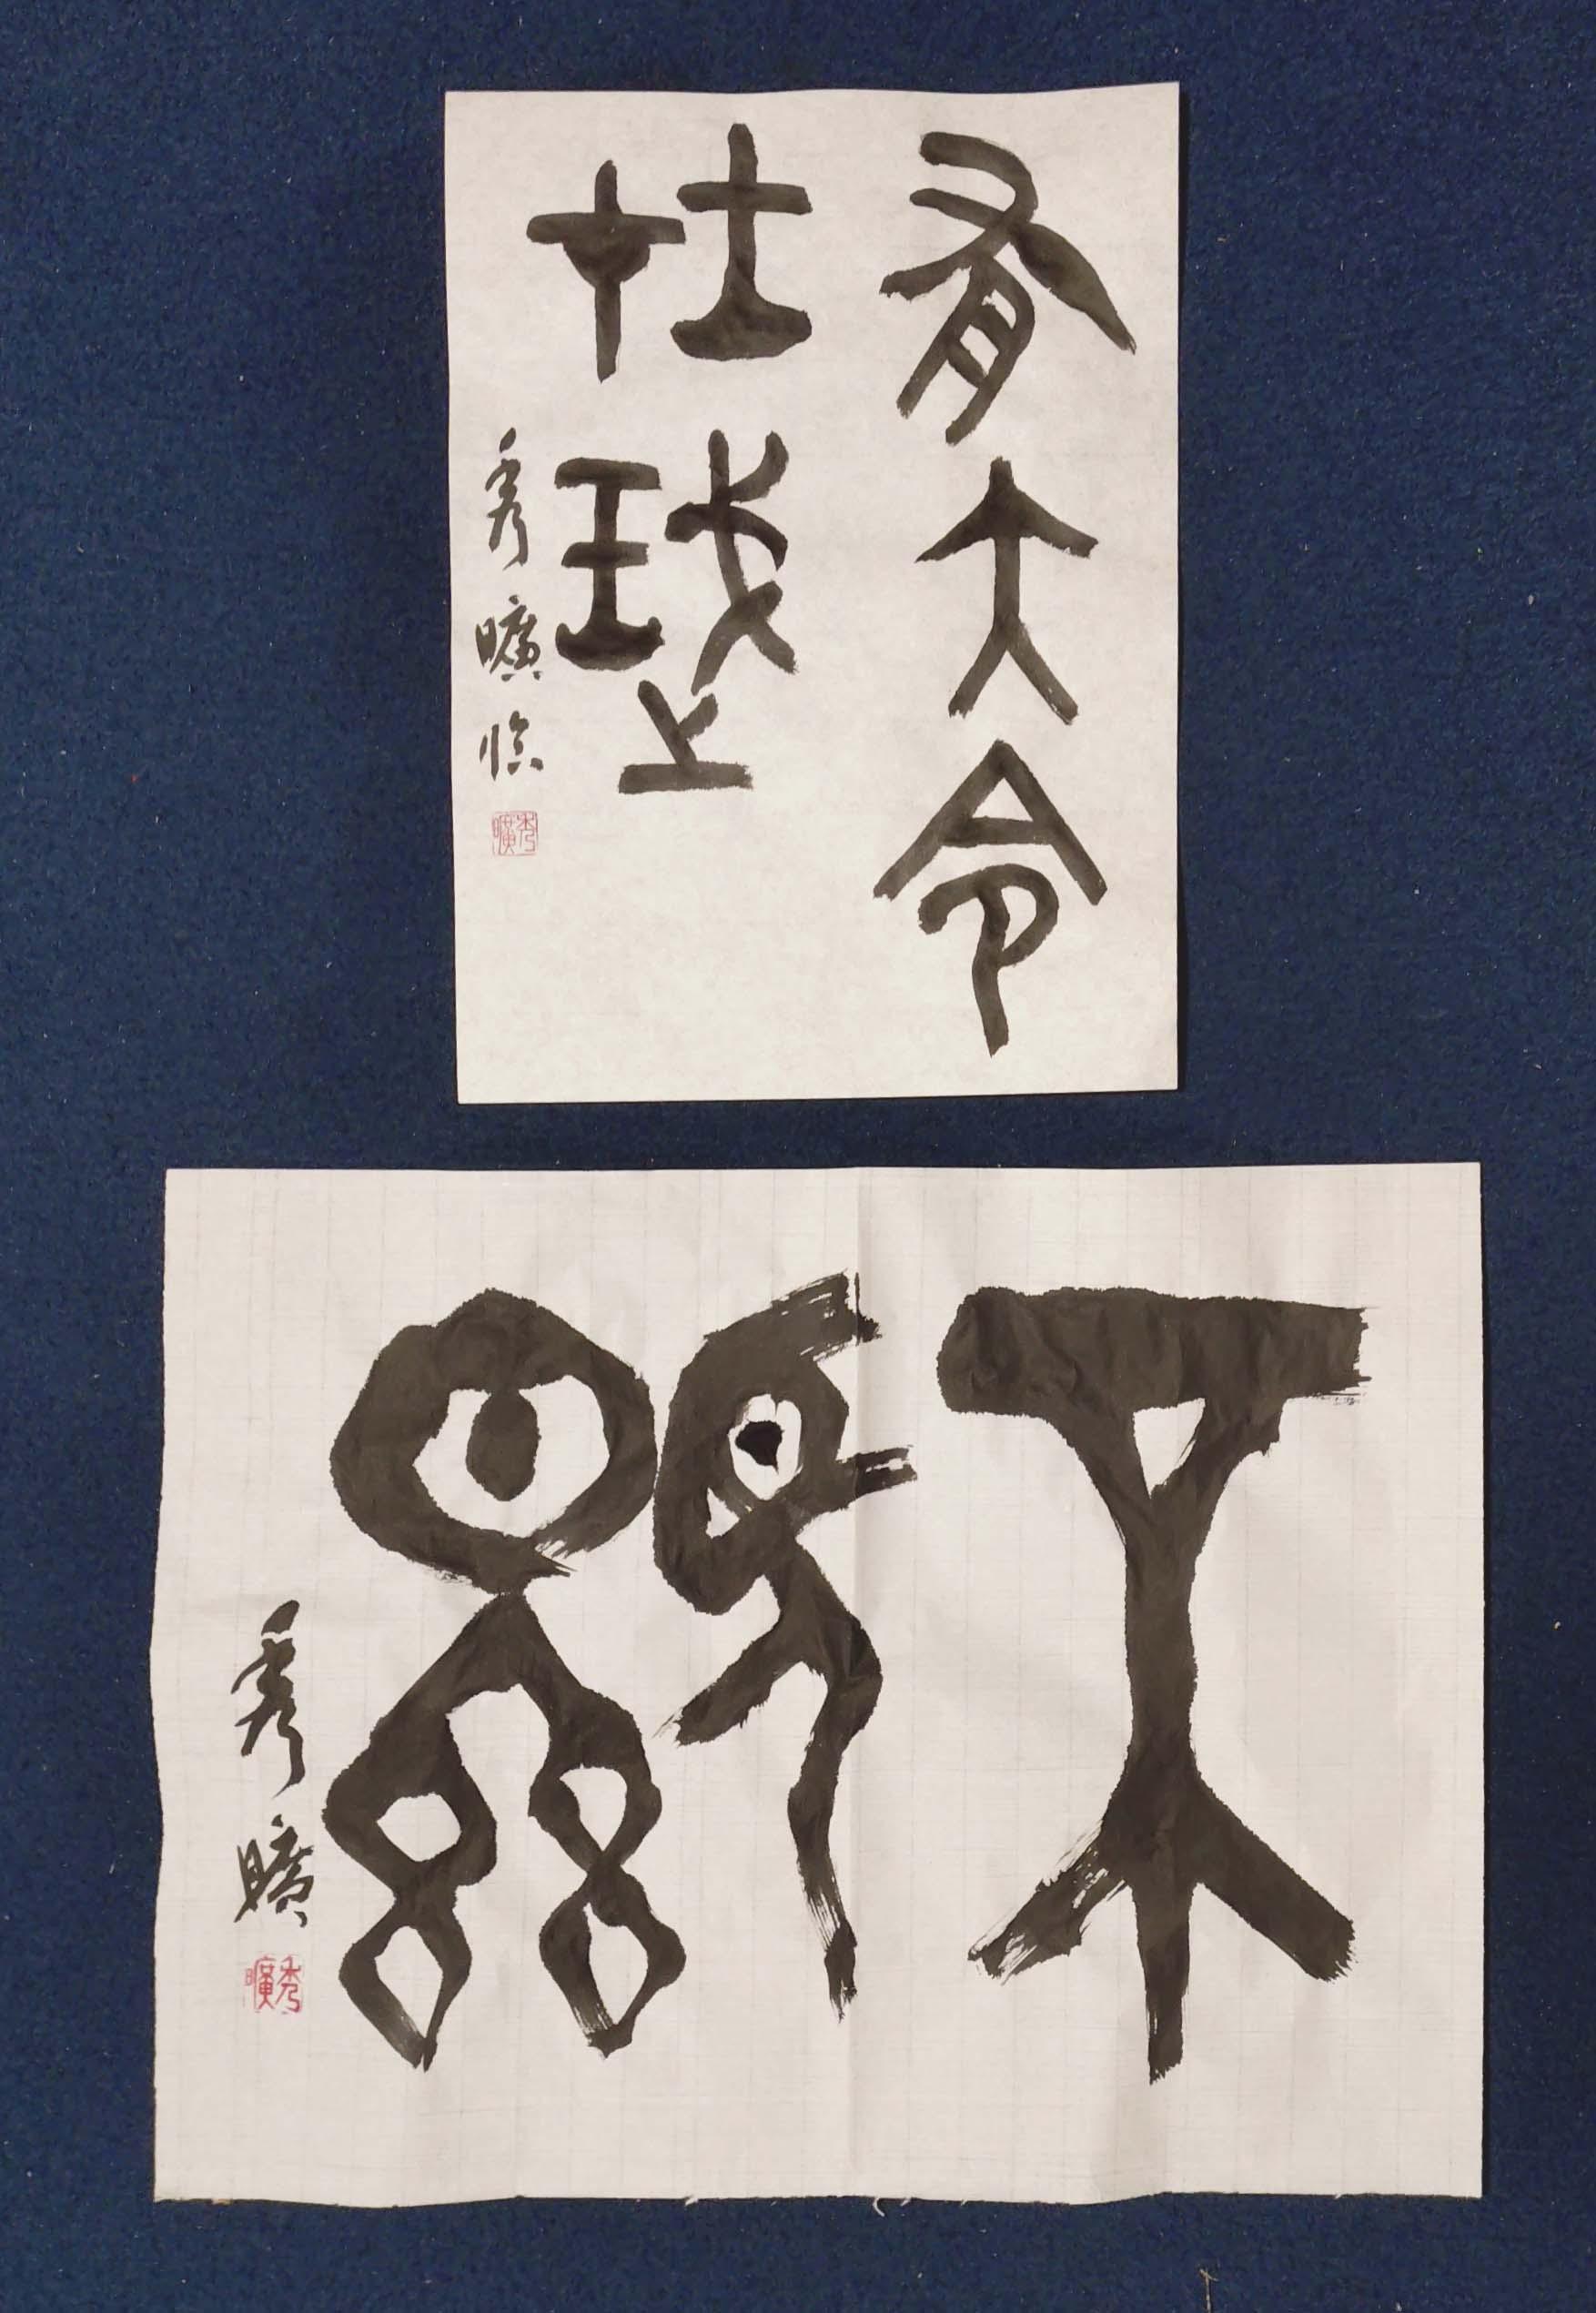 有大令
在珷
秀曠臨
秀曠
不
顯
秀曠
秀曠